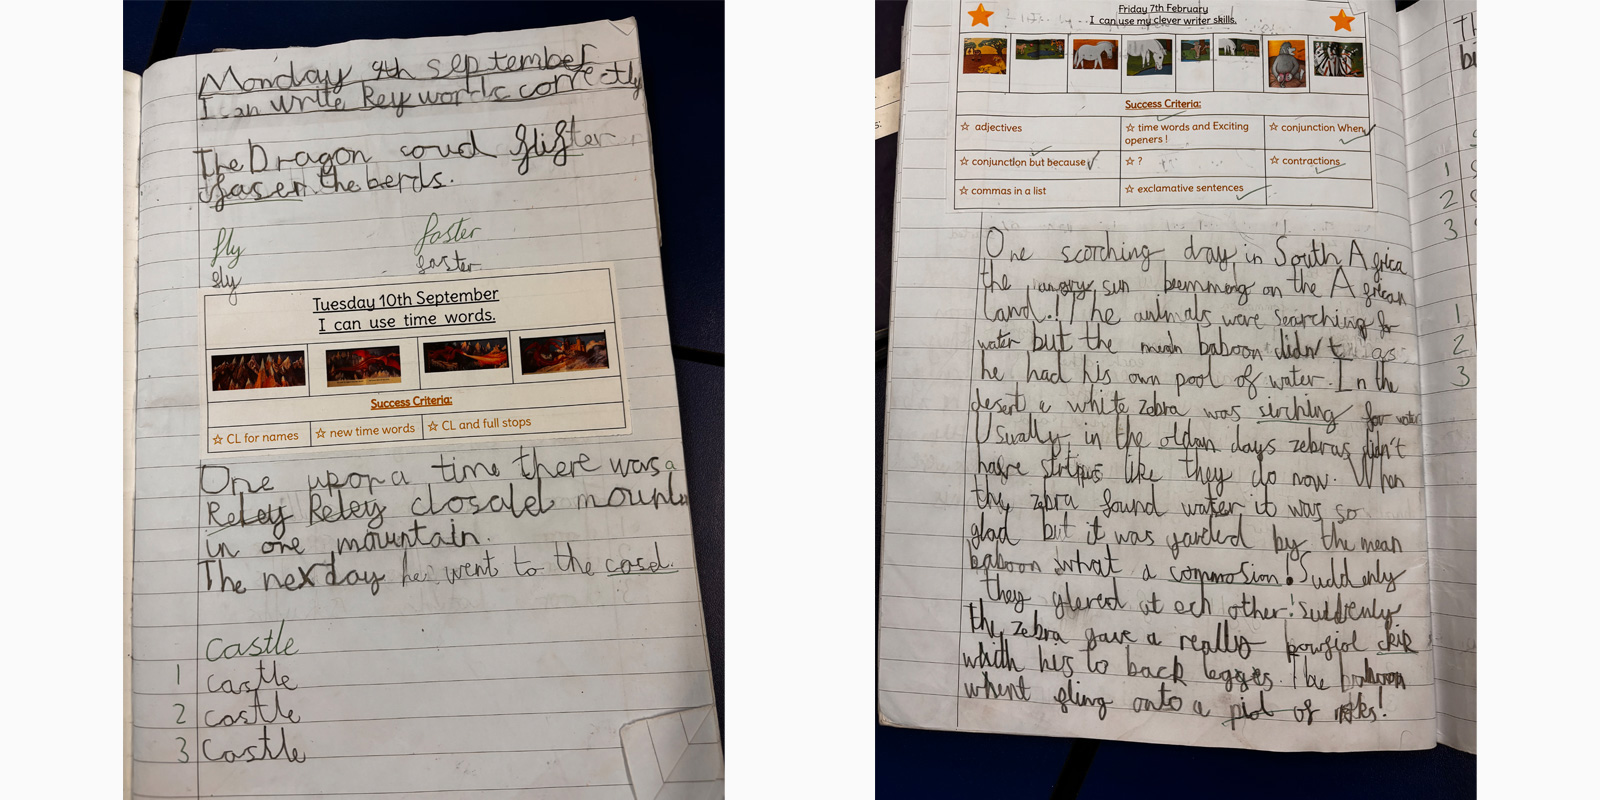 Monday 9th september
I can write key words correctly
The Dragon coud
faser the berds.
fly
faster
fly
faster
Tuesday 10th September
I can use time words.
Success Criteria:
☆ CL for names
☆ new time words
☆ CL and full stops
One upon a time there was a
Reley Reley closaled mountn
in one mountain.
The nexday he went to the casel.
castle
1 castle
2 castle
3 Castle
Friday 7th February
I can use my clever writer skills.
Success Criteria:
☆ adjectives
☆ time words and Exciting
openers !
☆ conjunction When
☆ conjunction but because
☆ ?
☆ contractions
☆ commas in a list
☆ exclamative sentences
One scorching day in South Africa
the angry sun beemming on the African
Land.! The animals were searching for
water but the mean baboon didn't as
he had his own pool of water. In the
desert a white zebra was sirching for water
Usually, in the oldan days zebras didn't
have stripus like they do now. When
the zebra found water it was so
glad but it was garded by the mean
baboon what a commosion! Suddenly
they glered at ech other! suddenly.
the zebra gave a really powfiol ckik
whith his to back legges. The baboon
whent fling onto a piol of rocks!
1
2
3
1
2
3